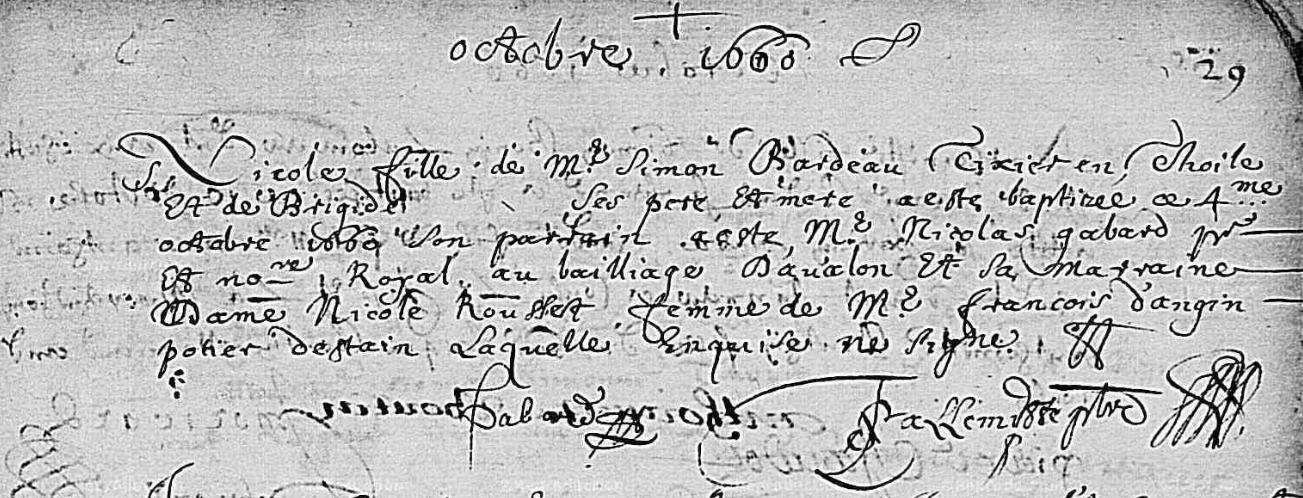 octobre 1660
29
Nicole fille de Mr Simon Bardeau Tixier en Thoile
Et de Brigide ses pere Et mere a este baptizée ce 4me
octobre 1660 son parrain a este Mr Nicolas gabard pr
Et nore Royal au bailliage D'aualon Et sa marraine
Dame Nicole Rousset femme de Mr francois d'angin
potier destain Laquelle Enquise ne signe
Gabard